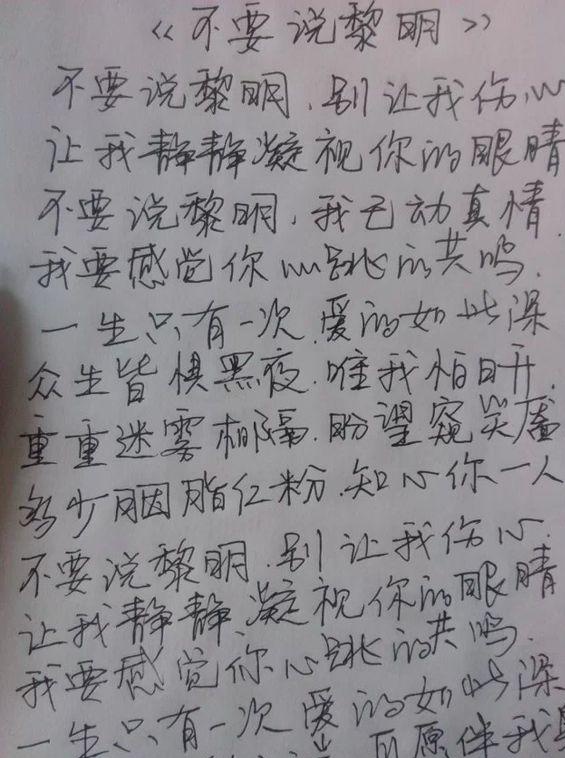 《不要说黎明》
不要说黎明.别让我伤心
让我静静凝视你的眼睛
不要说黎明,我已动真情.
我要感觉你心跳的共鸣.
一生只有一次.爱的如此深
众生皆惧黑夜.唯我怕日升.
重重迷雾相隔.盼望窥笑靥
多少胭脂红粉.知心你一人
不要说黎明.别让我伤心.
让我静静凝视你的眼睛
我要感觉你心跳的共鸣.
一生只有一次爱的如此深
愿伴我